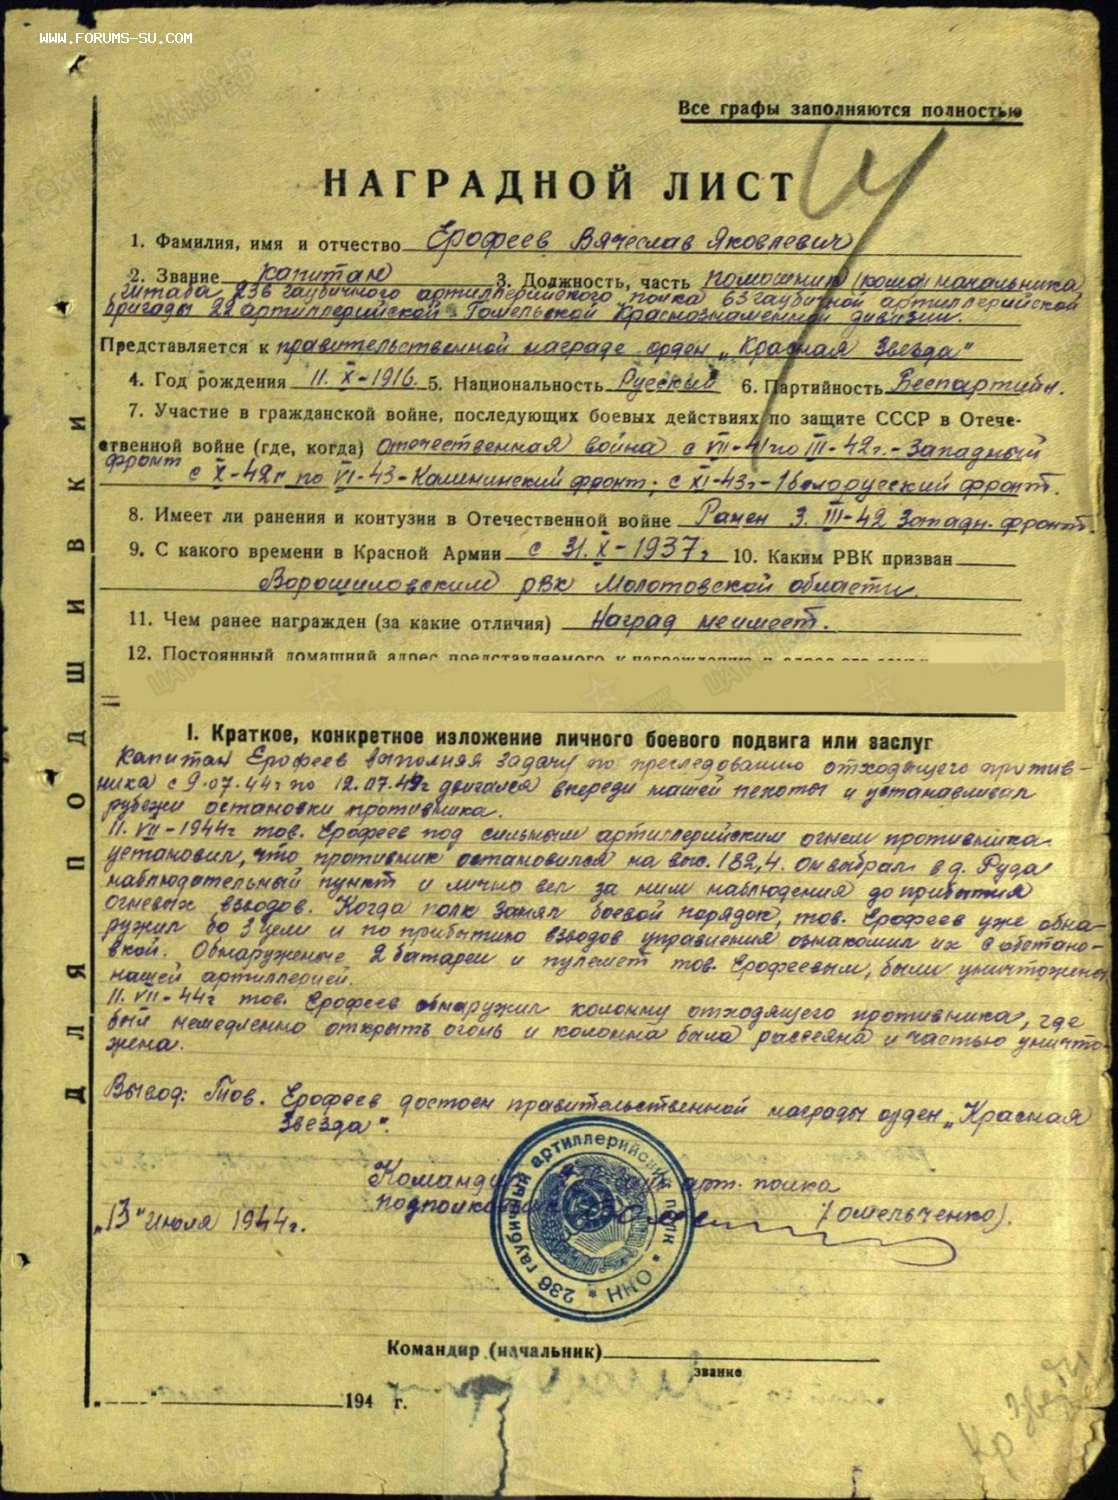 www.forums-su.com
Все графы заполняются полностью
НАГРАДНОЙ ЛИСТ
1. Фамилия, имя и отчество Ерофеев Вячеслав Яковлевич
2. Звание капитан 3. Должность, часть помошник начальника
штаба 236 гаубичного артиллерийского полка 63 гаубичной артиллерийской
бригады 22 артиллерийской Гомельской Краснознаменной дивизии.
Представляется к правительственной награде орден „Красная Звезда"
4. Год рождения 11. X-1916. 5. Национальность Русский 6. Партийность Беспартийн.
7. Участие в гражданской войне, последующих боевых действиях по защите СССР в Отече-
ственной войне (где, когда) Отечественная война с VII-41 по III-42г.-Западный
фронт с X-42г по VI-43-Калининский фронт, с XI-43г-1 белорусский фронт.
8. Имеет ли ранения и контузии в Отечественной войне Ранен 3. III-42 Западн. фронт.
9. С какого времени в Красной Армии с 31. X-1937г 10. Каким РВК призван
Ворошиловским рвк Молотовской области.
11. Чем ранее награжден (за какие отличия) Наград неимеет.
12. Постоянный домашний адрес представляемого к награждению и адрес его семьи
I. Краткое, конкретное изложение личного боевого подвига или заслуг
Капитан Ерофеев выполняя задачу по преследованию отходящего против-
ника с 9.07.44г по 12.07.44г двигался впереди нашей пехоты и устанавливал
рубежи остановки противника.
11. VII-1944г тов. Ерофеев под сильным артиллерийским огнем противника
установил, что противник остановился на выс. 182,4. Он выбрал в д. Руда
наблюдательный пункт и лично вел за ним наблюдения до прибытия
огневых взводов. Когда полк занял боевой порядок, тов. Ерофеев уже обна-
ружил до 3 цели и по прибытию взводов управления ознакомил их с обстано-
вкой. Обнаруженые 2 батареи и пулемет тов. Ерофеевым, были уничтожены
нашей артиллерией.
11. VII-44г тов. Ерофеев обнаружил колонну отходящего противника, где
был немедленно открыть огонь и колонна была рассеяна и частью уничто-
жена.
Вывод: Тов. Ерофеев достоен правительственной награды орден „Красная
Звезда".
Командир арт. полка
подполковник /Омельченко).
„13" июля 1944г.
236 гаубичный артиллерийский полк * ОНН *
Командир (начальник)
звание
„ " 194 г.
Кр Звезда
ДЛЯ ПОДШИВКИ